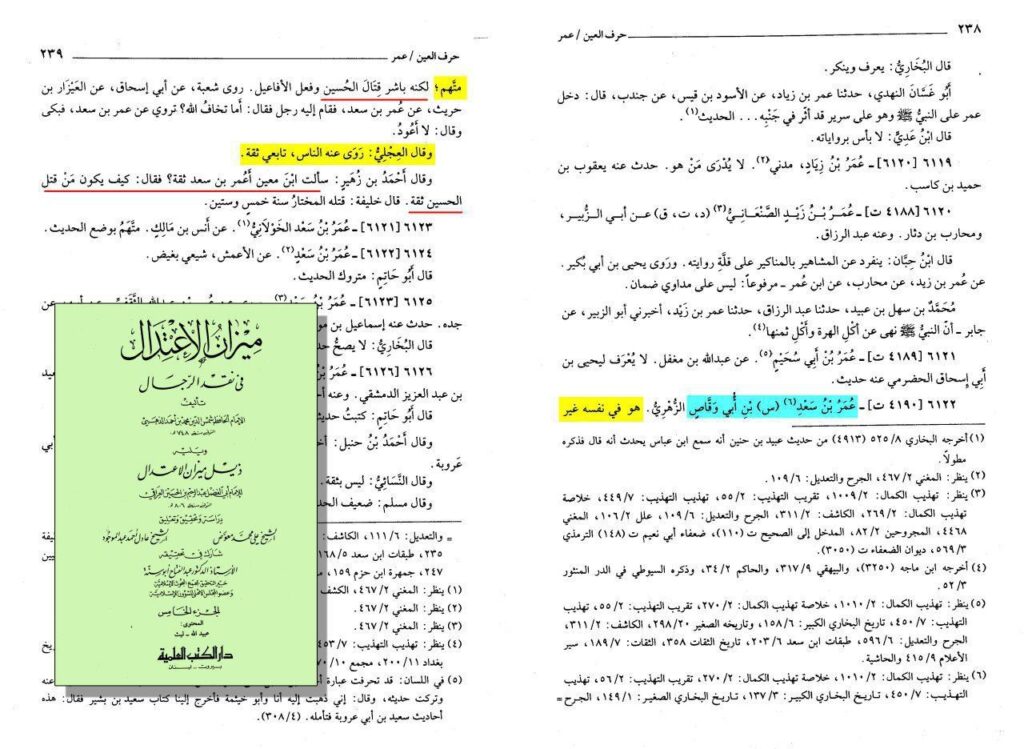 ٢٣٨ حرف العين / عمر
قال البُخَارِيُّ: يعرف وينكر.
أَبُو غَسَّانَ النهدي، حدثنا عمر بن زياد، عن الأسود بن قيس، عن جندب، قال: دخل
عمر على النبيِّ ﷺ وهو على سرير قد أثّر في جَنْبِه. . . الحديث(١).
قال ابْنُ عَدِيٍّ: لا بأس برواياته.
٦١١٩ [٦١٢٠] - عُمَرُ بْنُ زِيَادٍ، مدني(٢). لا يُدْرَى مَنْ هو. حدث عنه يعقوب بن
حميد بن كاسب.
٦١٢٠ [٤١٨٨ ت] - عُمَرُ بْنُ زَيْدٍ الصَّنْعَانِيُّ(٣) (د، ت، ق) عن أبي الزُّبير،
ومحارب بن دثار. وعنه عبد الرزاق.
قال ابْنُ حِبَّان: ينفرد عن المشاهير بالمناكير على قلَّةِ روايته. ورَوى يحيى بن أبي بُكير.
عن عُمر بن زيد، عن محارب، عن ابن عُمر - مرفوعاً: ليس على مداوي ضمان.
مُحَمَّدُ بن سهل بن عبيد، حدثنا عبد الرزاق، حدثنا عمر بن زَيْد، أخبرني أبو الزبير، عن
جابر - أنّ النبيَّ ﷺ نهى عن أكْلِ الهرة وأكْلِ ثمنها(٤).
٦١٢١ [٤١٨٩ ت] - عُمَرُ بْنُ أَبِي سُحَيْمٍ(٥). عن عبدالله بن مغفل. لا يُعْرَف ليحيى بن
أَبِي إسحاق الحضرمي عنه حديث.
٦١٢٢ [٤١٩٠ ت] - عُمَرُ بْنُ سَعْدِ(٦) (س) بْنِ أَبي وَقَّاصٍ الزُّهْرِيُّ. هو في نفسه غير
(١) أخرجه البخاري ٥٢٥/٨ (٤٩١٣) من حديث عبيد بن حنين أنه سمع ابن عباس يحدث أنه قال فذكره
مطولاً.
(٢) ينظر: المغني ٤٦٧/٢، الجرح والتعديل: ١٠٩/٦.
(٣) ينظر: تهذيب الكمال: ١٠٠٩/٢، تقريب التهذيب: ٥٥/٢، تهذيب التهذيب: ٤٤٩/٧، خلاصة
تهذيب الكمال: ٢٦٩/٢، الكاشف: ٣١١/٢، الجرح والتعديل: ١٠٩/٦، علل ١٠٦/٢، المغني
٤٤٦٨، المجروحين ٨٢/٢، المدخل إلى الصحيح ت (١١٠)، ضعفاء أبي نعيم ت (١٤٨) الترمذي
٥٦٩/٣، ديوان الضعفاء ت (٣٠٥٠).
(٤) أخرجه ابن ماجه (٣٢٥٠)، والبيهقي ٣١٧/٩، والحاكم ٣٤/٢، وذكره السيوطي في الدر المنثور
٥٢/٣.
(٥) ينظر: تهذيب الكمال: ١٠١٠/٢، خلاصة تهذيب الكمال: ٢٧٠/٢، تقريب التهذيب: ٥٥/٢، تهذيب
التهذيب: ٤٥٠/٧، تاريخ البخاري الكبير: ١٥٨/٦، وتاريخه الصغير ٢٩٨/٢٠، الكاشف: ٣١١/٢،
الجرح والتعديل: ٥٩٦/٦، طبقات ابن سعد ٢٠٣/٦، تاريخ الثقات ٣٥٨، الثقات: ١٨٩/٧، سير
الأعلام ٤١٥/٩ والحاشية.
(٦) ينظر: تهذيب الكمال: ١٠١٠/٢، خلاصة تهذيب الكمال: ٢٧٠/٢، تقريب التهذيب: ٥٦/٢، تهذيب
التهذيب: ٤٥٠/٧، تاريخ البخاري الكبير: ١٣٧/٣، تاريخ البخاري الصغير: ١٤٩/١، الجرح =
حرف العين / عمر ٢٣٩
متَّهم؛ لكنه باشر قِتَالَ الحُسين وفعل الأفاعيل. روى شعبة، عن أبي إسحاق، عن العَيْزَار بن
حريث، عن عُمر بن سعد، فقام إليه رجل فقال: أَما تخافُ الله؟ تروي عن عمر بن سعد، فبكى
وقال: لا أَعُودُ.
وقال العِجْلِيُّ: رَوَى عنه الناس، تابعي ثقة.
وقال أَحْمَدُ بن زُهَيرٍ: سألت ابْنَ معين أَعُمر بن سعد ثقة؟ فقال: كيف يكون مَنْ قتل
الحسين ثقة. قال خليفة: قتله المختارُ سنة خمسٍ وستين.
٦١٢٣ [٦١٢١] - عُمَرُ بْنُ سَعْد الخَوْلَانِيُّ(١). عن أنس بن مَالِكٍ. متَّهَمٌ بوضع الحديث.
٦١٢٤ [٦١٢٢] - عُمَرُ بْنُ سَعْدٍ(٢). عن الأعمش، شيعي بغيض.
قال أَبُو حَاتِمٍ: متروك الحديث.
٦١٢٥ [٦١٢٣] - عُمَرُ بْنُ عن
جده. حدث عنه إسماعيل بن
قال البُخَارِيُّ: لا يصحُّ
٦١٢٦ [٦١٢٤] - عُمَرُ
بن عبد العزيز الدمشقي. وعنه
قال أَبُو حَاتِمٍ: كتبتُ حديث
وقال أَحْمَدُ بْنُ حنبل: أبي
عَروبة.
وقال النَّسَائِيُّ: ليس بثقة.
وقال مسلم: ضعيف
= والتعديل: ١١١/٦، الكاشف:
٢٣٥، طبقات ابن سعد ١٦٨/٥
٢٤٧، جمهرة ابن حزم ١٥٩،
(١) ينظر: المغني ٤٦٧/٢، الكشف
(٢) ينظر: المغني ٤٦٧/٢.
(٣) ينظر: المغني ٤٦٧/٢.
(٤) ينظر: تهذيب التهذيب: ٤٥٣/٧، تاريخ
بغداد ٢٠٠/١١، مجمع ٧٠/١٠
(٥) في اللسان: قد تحرفت عبارة عنه
وتركت حديثه، وقال: إني ذهبت إليه أنا وأبو خيثمة فأخرج إلينا كتاب سعيد بن بشير فقال: هذه
أحاديث سعيد بن أبي عروبة فتأمله. (٣٠٨/٤).
ميزان الاعتدال
في نقد الرجال
تأليف
الإمام الحافظ شمس الدين محمد بن أحمد الذهبي
ويليه
ذيل ميزان الاعتدال
للإمام أبي الفضل عبد الرحيم بن الحسين العراقي
دراسة وتحقيق وتعليق
الشيخ علي محمد معوض الشيخ عادل أحمد عبد الموجود
شارك في تحقيقه
الأستاذ الدكتور عبد الفتاح أبو سنة
الجزء الخامس
المحتوى:
عبيد الله - ليث
دار الكتب العلمية
بيروت - لبنان